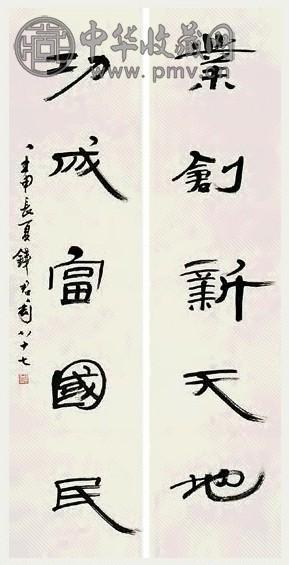 中华收藏网
www.pmv.cn
業創新天地
功成富國民
壬申長夏錢君匋八十七